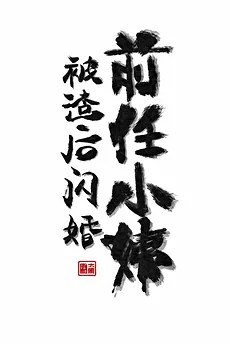 被渣后闪婚
前任小姨